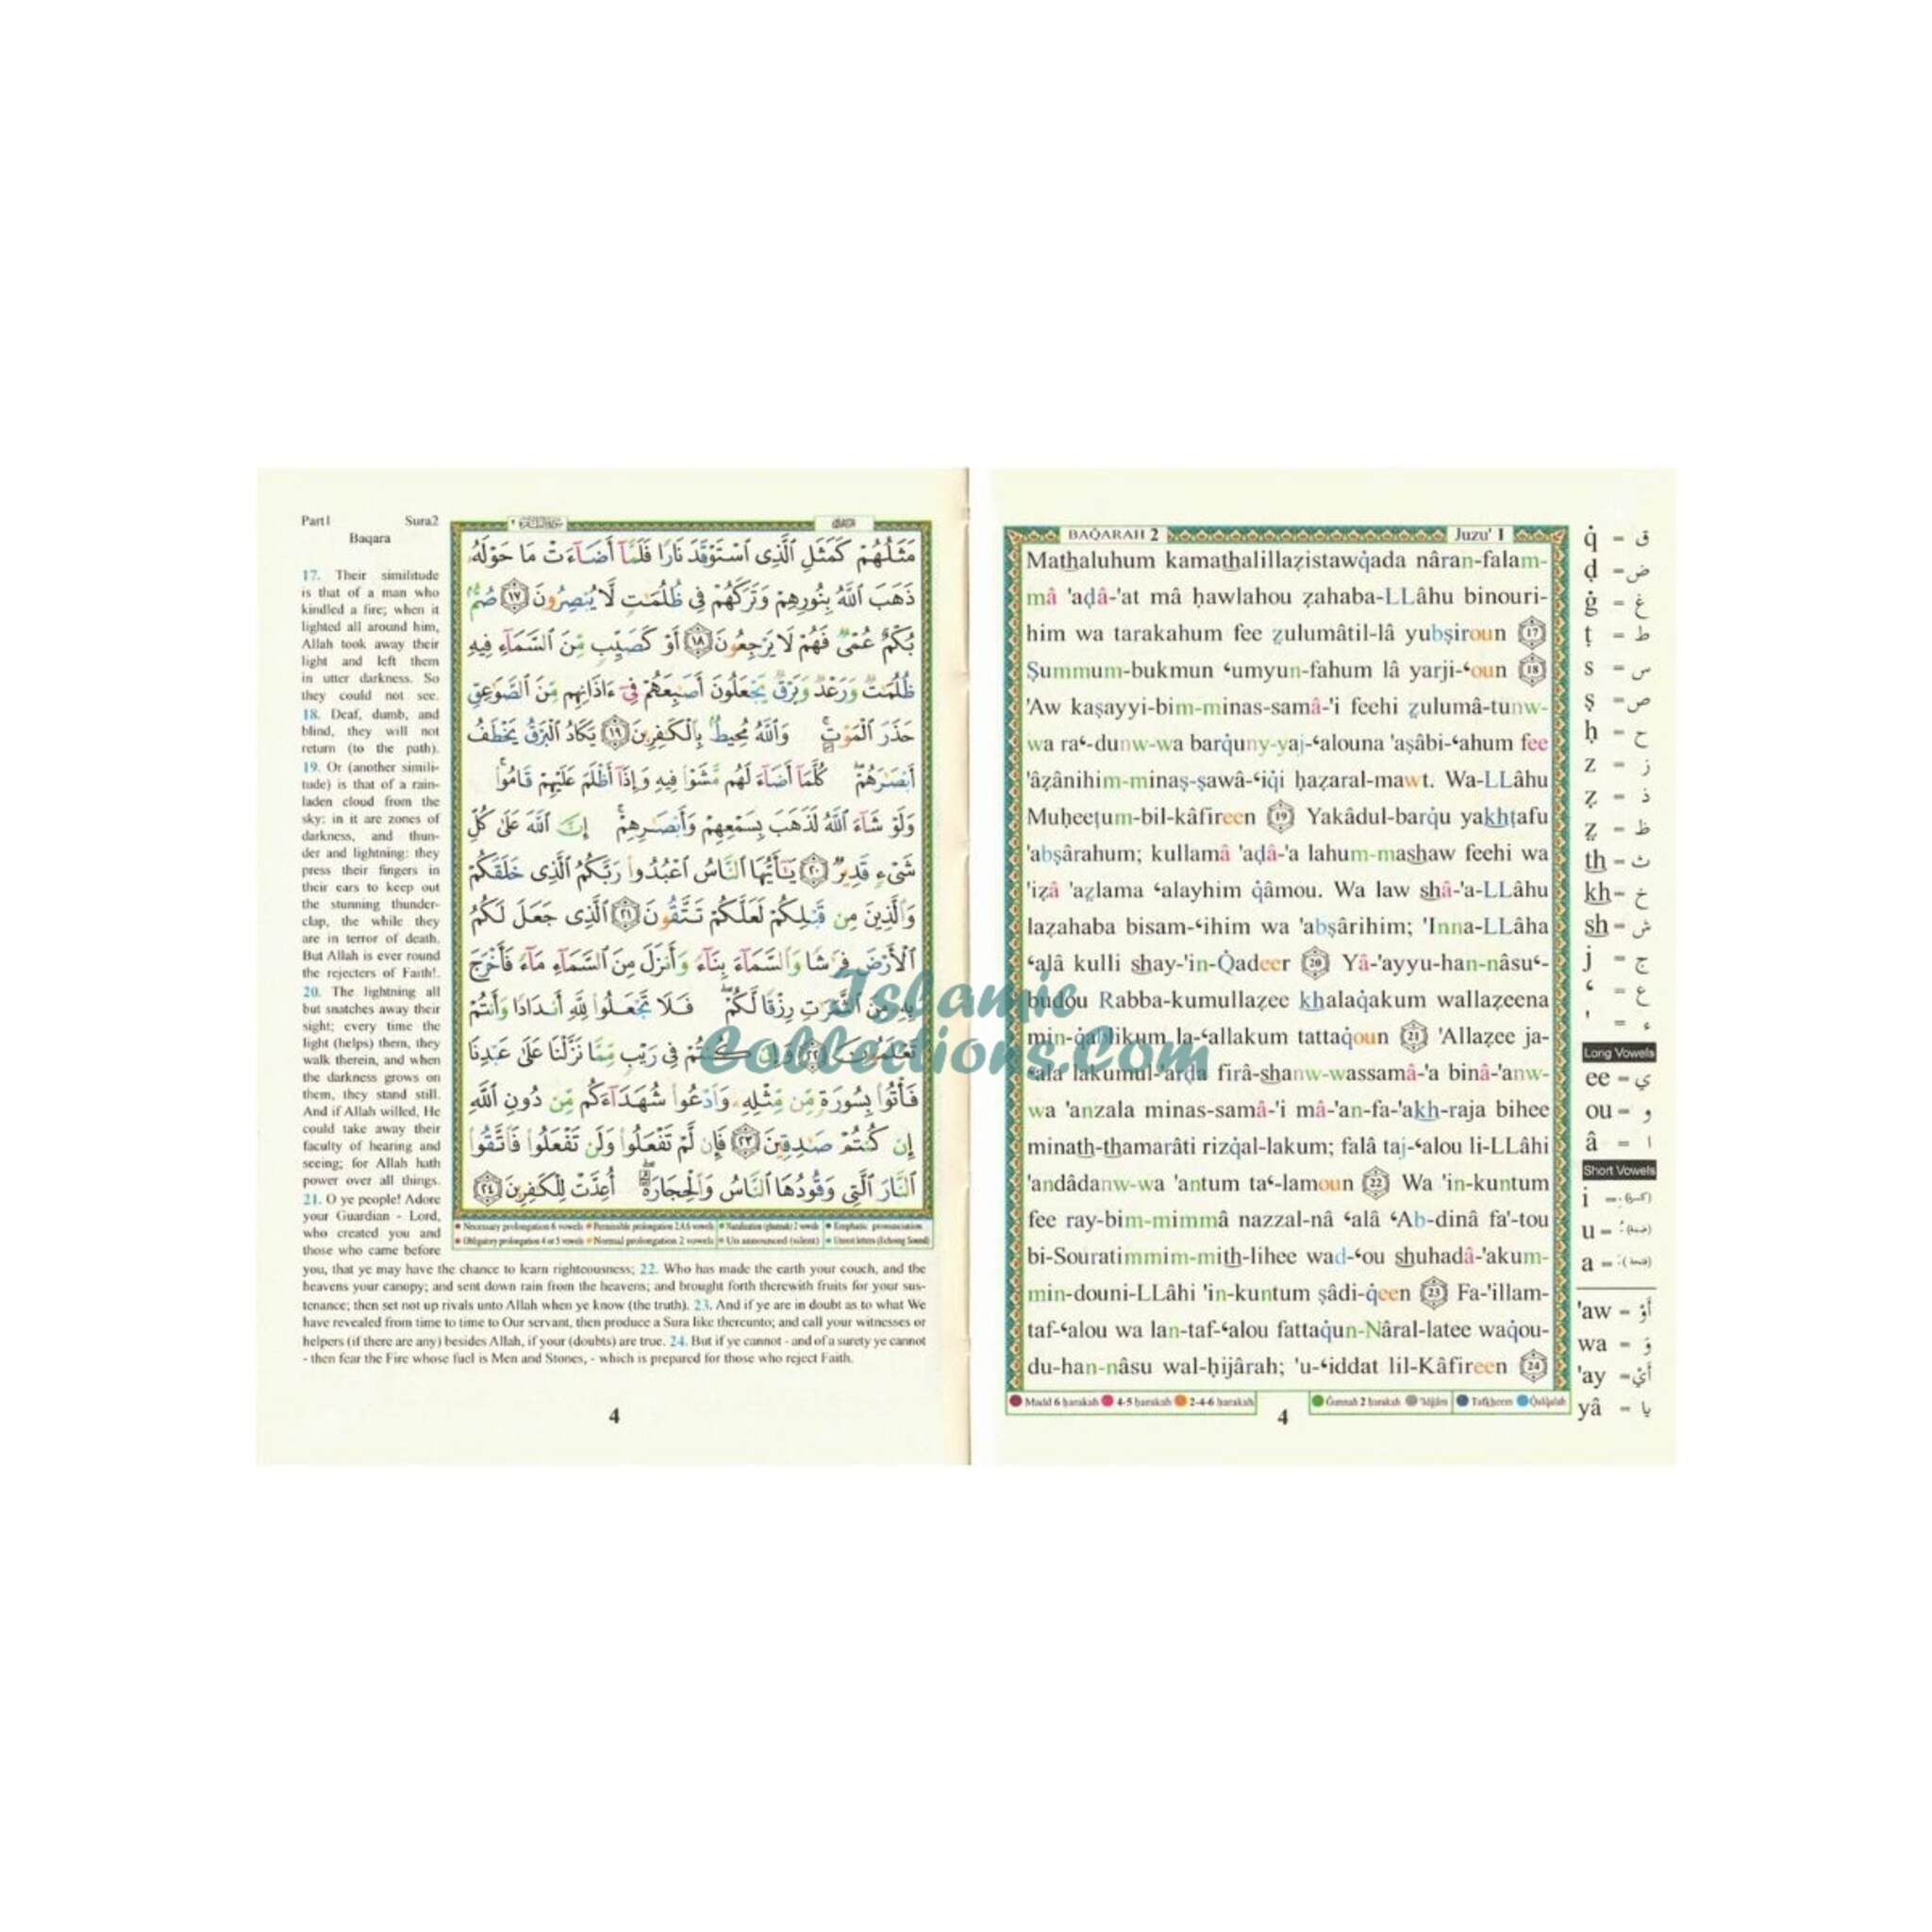 Part1 Sura2
Baqara
17. Their similitude
is that of a man who
kindled a fire; when it
lighted all around him,
Allah took away their
light and left them
in utter darkness. So
they could not see.
18. Deaf, dumb, and
blind, they will not
return (to the path).
19. Or (another simili-
tude) is that of a rain-
laden cloud from the
sky: in it are zones of
darkness, and thun-
der and lightning: they
press their fingers in
their ears to keep out
the stunning thunder-
clap, the while they
are in terror of death.
But Allah is ever round
the rejecters of Faith!.
20. The lightning all
but snatches away their
sight; every time the
light (helps) them, they
walk therein, and when
the darkness grows on
them, they stand still.
And if Allah willed, He
could take away their
faculty of hearing and
seeing; for Allah hath
power over all things.
21. O ye people! Adore
your Guardian - Lord,
who created you and
those who came before
you, that ye may have the chance to learn righteousness; 22. Who has made the earth your couch, and the
heavens your canopy; and sent down rain from the heavens; and brought forth therewith fruits for your sus-
tenance; then set not up rivals unto Allah when ye know (the truth). 23. And if ye are in doubt as to what We
have revealed from time to time to Our servant, then produce a Sura like thereunto; and call your witnesses or
helpers (if there are any) besides Allah, if your (doubts) are true. 24. But if ye cannot - and of a surety ye cannot
- then fear the Fire whose fuel is Men and Stones, - which is prepared for those who reject Faith.
مَثَلُهُمْ كَمَثَلِ ٱلَّذِى ٱسْتَوْقَدَ نَارًا فَلَمَّآ أَضَآءَتْ مَا حَوْلَهُۥ
ذَهَبَ ٱللَّهُ بِنُورِهِمْ وَتَرَكَهُمْ فِى ظُلُمَٰتٍ لَّا يُبْصِرُونَ ١٧ صُمٌّۢ
بُكْمٌ عُمْىٌ فَهُمْ لَا يَرْجِعُونَ ١٨ أَوْ كَصَيِّبٍ مِّنَ ٱلسَّمَآءِ فِيهِ
ظُلُمَٰتٌ وَرَعْدٌ وَبَرْقٌ يَجْعَلُونَ أَصَٰبِعَهُمْ فِىٓ ءَاذَانِهِم مِّنَ ٱلصَّوَٰعِقِ
حَذَرَ ٱلْمَوْتِ ۚ وَٱللَّهُ مُحِيطٌۢ بِٱلْكَٰفِرِينَ ١٩ يَكَادُ ٱلْبَرْقُ يَخْطَفُ
أَبْصَٰرَهُمْ ۖ كُلَّمَآ أَضَآءَ لَهُم مَّشَوْا۟ فِيهِ وَإِذَآ أَظْلَمَ عَلَيْهِمْ قَامُوا۟ ۚ
وَلَوْ شَآءَ ٱللَّهُ لَذَهَبَ بِسَمْعِهِمْ وَأَبْصَٰرِهِمْ ۚ إِنَّ ٱللَّهَ عَلَىٰ كُلِّ
شَىْءٍ قَدِيرٌ ٢٠ يَٰٓأَيُّهَا ٱلنَّاسُ ٱعْبُدُوا۟ رَبَّكُمُ ٱلَّذِى خَلَقَكُمْ
وَٱلَّذِينَ مِن قَبْلِكُمْ لَعَلَّكُمْ تَتَّقُونَ ٢١ ٱلَّذِى جَعَلَ لَكُمُ
ٱلْأَرْضَ فِرَٰشًا وَٱلسَّمَآءَ بِنَآءً وَأَنزَلَ مِنَ ٱلسَّمَآءِ مَآءً فَأَخْرَجَ
بِهِۦ مِنَ ٱلثَّمَرَٰتِ رِزْقًا لَّكُمْ ۖ فَلَا تَجْعَلُوا۟ لِلَّهِ أَندَادًا وَأَنتُمْ
تَعْلَمُونَ ٢٢ وَإِن كُنتُمْ فِى رَيْبٍ مِّمَّا نَزَّلْنَا عَلَىٰ عَبْدِنَا
فَأْتُوا۟ بِسُورَةٍ مِّن مِّثْلِهِۦ وَٱدْعُوا۟ شُهَدَآءَكُم مِّن دُونِ ٱللَّهِ
إِن كُنتُمْ صَٰدِقِينَ ٢٣ فَإِن لَّمْ تَفْعَلُوا۟ وَلَن تَفْعَلُوا۟ فَٱتَّقُوا۟
ٱلنَّارَ ٱلَّتِى وَقُودُهَا ٱلنَّاسُ وَٱلْحِجَارَةُ ۖ أُعِدَّتْ لِلْكَٰفِرِينَ ٢٤
Necessary prolongation 6 vowels Permissible prolongation 2,4,6 vowels Nazalization (ghunnah) 2 vowels Emphatic pronunciation
Obligatory prolongation 4 or 5 vowels Normal prolongation 2 vowels Un announced (silent) Unrest letters (Echoing Sound)
4
BAQ̇ARAH 2 Juzu' 1
Mathaluhum kamathalillaẓistawq̇ada nâran-falam-
mâ 'aḍâ-'at mâ ḥawlahou ẓahaba-LLâhu binouri-
him wa tarakahum fee ẓulumâtil-lâ yubṣiroun 17
Ṣummum-bukmun ‘umyun-fahum lâ yarji-‘oun 18
'Aw kaṣayyi-bim-minas-samâ-'i feehi ẓulumâ-tunw-
wa ra‘-dunw-wa barq̇uny-yaj-‘alouna 'aṣâbi-‘ahum fee
'âẓânihim-minaṣ-ṣawâ-‘iq̇i ḥaẓaral-mawt. Wa-LLâhu
Muḥeeṭum-bil-kâfireen 19 Yakâdul-barq̇u yakhṭafu
'abṣârahum; kullamâ 'aḍâ-'a lahum-mashaw feehi wa
'iẓâ 'aẓlama ‘alayhim q̇âmou. Wa law shâ-'a-LLâhu
laẓahaba bisam-‘ihim wa 'abṣârihim; 'Inna-LLâha
‘alâ kulli shay-'in-Q̇adeer 20 Yâ-'ayyu-han-nâsu‘-
budou Rabba-kumullaẓee khalaq̇akum wallaẓeena
min-q̇ablikum la-‘allakum tattaq̇oun 21 'Allaẓee ja-
‘ala lakumul-'arḍa firâ-shanw-wassamâ-'a binâ-'anw-
wa 'anzala minas-samâ-'i mâ-'an-fa-'akh-raja bihee
minath-thamarâti rizq̇al-lakum; falâ taj-‘alou li-LLâhi
'andâdanw-wa 'antum ta‘-lamoun 22 Wa 'in-kuntum
fee ray-bim-mimmâ nazzal-nâ ‘alâ ‘Ab-dinâ fa'-tou
bi-Souratimmim-mith-lihee wad-‘ou shuhadâ-'akum-
min-douni-LLâhi 'in-kuntum ṣâdi-q̇een 23 Fa-'illam-
taf-‘alou wa lan-taf-‘alou fattaq̇un-Nâral-latee waq̇ou-
du-han-nâsu wal-ḥijârah; 'u-‘iddat lil-Kâfireen 24
Madd 6 ḥarakah 4-5 ḥarakah 2-4-6 ḥarakah Ġunnah 2 ḥarakah Tafkheem Q̇alq̇alah
4
q̇ = ق
ḍ = ض
ġ = غ
ṭ = ط
s = س
ṣ = ص
ḥ = ح
z = ز
ẓ = ذ
ẓ = ظ
th = ث
kh = خ
sh = ش
j = ج
‘ = ع
' = ء
Long Vowels
ee = ي
ou = و
â = ا
Short Vowels
i = (كسرة)
u = (ضمة)
a = (فتحة)
'aw = أَوْ
wa = وَ
'ay = أَيْ
yâ = يا
Islamic
Collections.Com